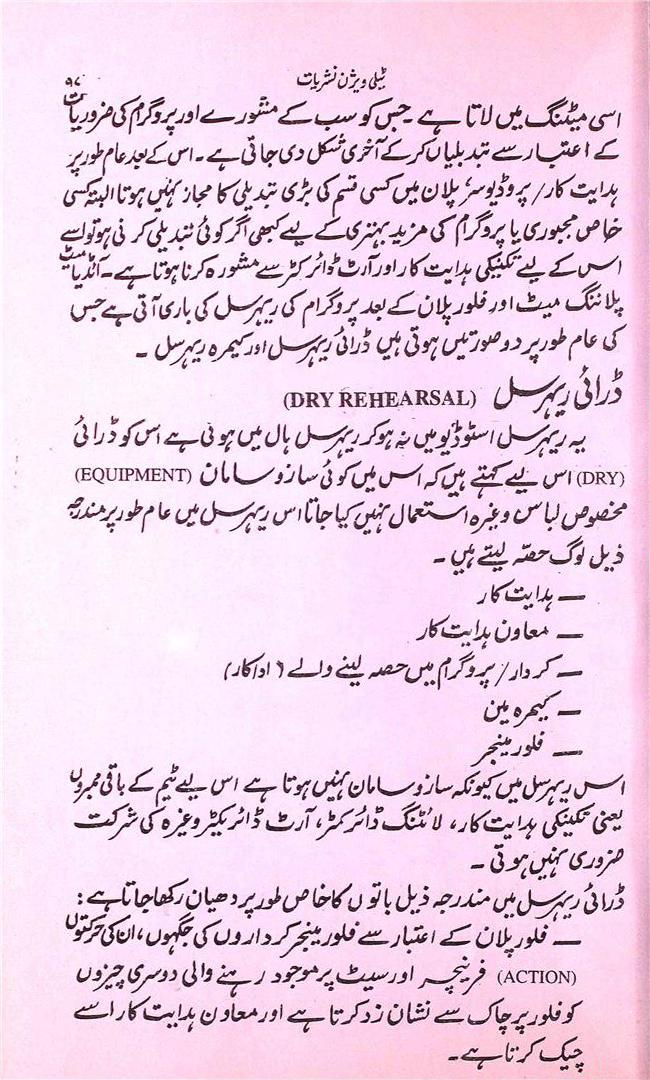 ٹیلی ویژن نشریات
۹۷
اسی میٹنگ میں لاتا ہے۔ جس کو سب کے مشورے اور پروگرام کی ضروریات
کے اعتبار سے تبدیلیاں کرکے آخری شکل دی جاتی ہے۔ اس کے بعد عام طور پر
ہدایت کار/ پروڈیوسر پلان میں کسی قسم کی بڑی تبدیلی کا مجاز نہیں ہوتا البتہ کسی
خاص مجبوری یا پروگرام کی مزید بہتری کے لیے کبھی اگر کوئی تبدیلی کرنی ہو تو اسے
اس کے لیے تکنیکی ہدایت کار اور آرٹ ڈائرکٹر سے مشورہ کرنا ہوتا ہے۔
پلاننگ میٹ اور فلور پلان کے بعد پروگرام کی ریہرسل کی باری آتی ہے جس
کی عام طور پر دو صورتیں ہوتی ہیں ڈرائی ریہرسل اور کیمرہ ریہرسل ۔
ڈرائی ریہرسل (DRY REHEARSAL)
یہ ریہرسل اسٹوڈیو میں نہ ہوکر ریہرسل ہال میں ہوتی ہے اس کو ڈرائی
(DRY) اس لیے کہتے ہیں کہ اس میں کوئی سازوسامان (EQUIPMENT)
مخصوص لباس وغیرہ استعمال نہیں کیا جاتا اس ریہرسل میں عام طور پر مندرجہ
ذیل لوگ حصّہ لیتے ہیں ۔
— ہدایت کار
— معاون ہدایت کار
— کردار/ پروگرام میں حصہ لینے والے (اداکار)
— کیمرہ مین
— فلور مینجر
اس ریہرسل میں کیونکہ سازوسامان نہیں ہوتا ہے اس لیے ٹیم کے باقی ممبروں
یعنی تکنیکی ہدایت کار، لائٹنگ ڈائرکٹر، آرٹ ڈائریکٹر وغیرہ کی شرکت
ضروری نہیں ہوتی ۔
ڈرائی ریہرسل میں مندرجہ ذیل باتوں کا خاص طور پر دھیان رکھا جاتا ہے :
— فلور پلان کے اعتبار سے فلور مینجر کرداروں کی جگہوں، ان کی حرکتوں
(ACTION) فرنیچر اور سیٹ پر موجود رہنے والی دوسری چیزوں
کو فلور پر چاک سے نشان زد کرتا ہے اور معاون ہدایت کار اسے
چیک کرتا ہے۔